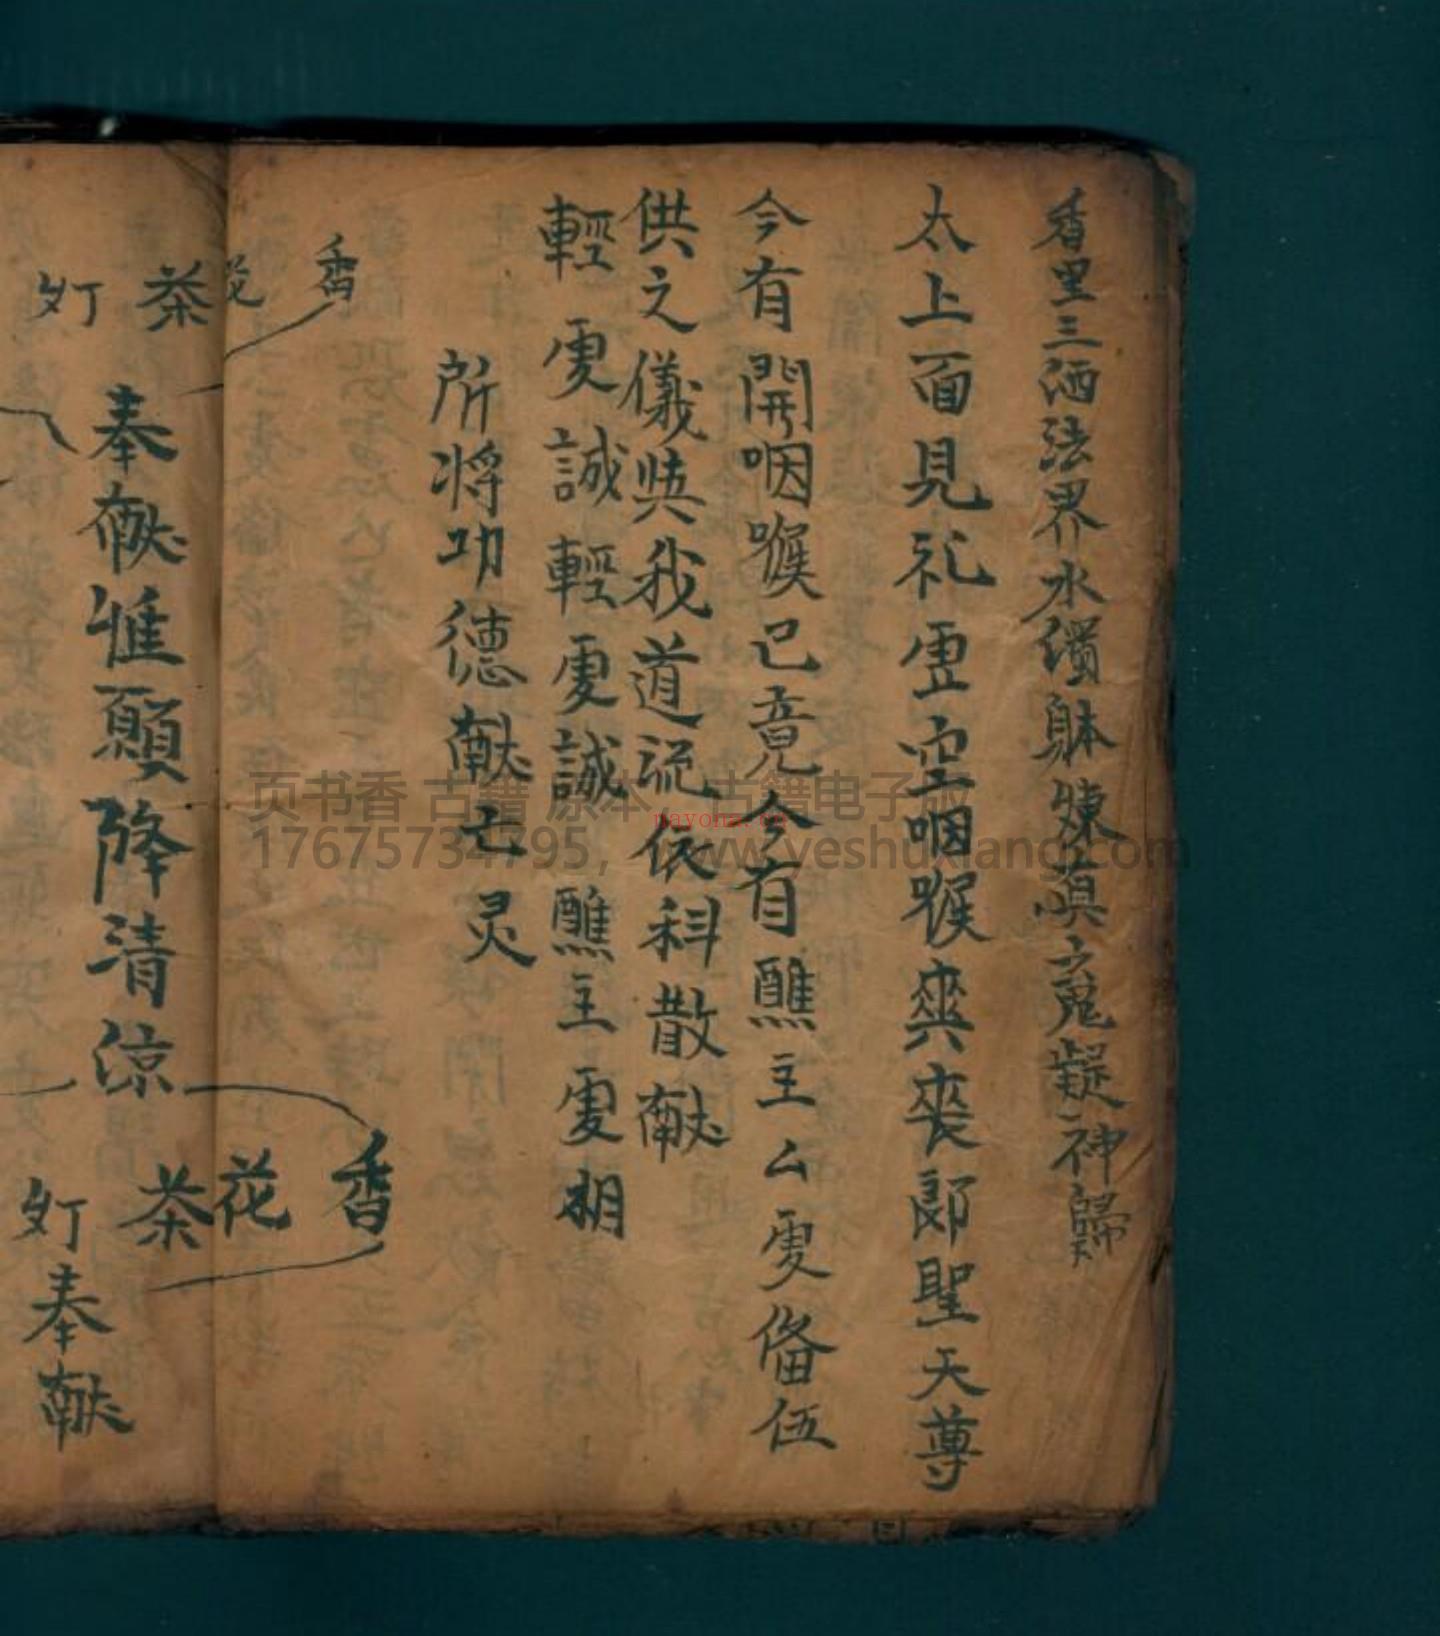 香里三洒法界水 躰煉眞之䰟凝神歸
太上面見礼 空咽喉 郎聖天尊
今有開咽喉已竟今有醮主厶 俻伍
供之儀 我道 依科散献
輕 誠輕 誠 醮主
所将功德献亡灵
香
花
茶
灯
奉献惟願降清涼
香
花
茶
灯
奉献
页书香 古籍 原本， 古籍电子版
17675734795， www.yeshuxiang.com
nayona.cn